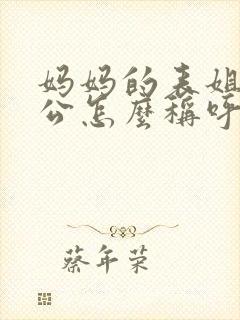 妈妈的表姐
公怎麼稱呼
蔡年荣